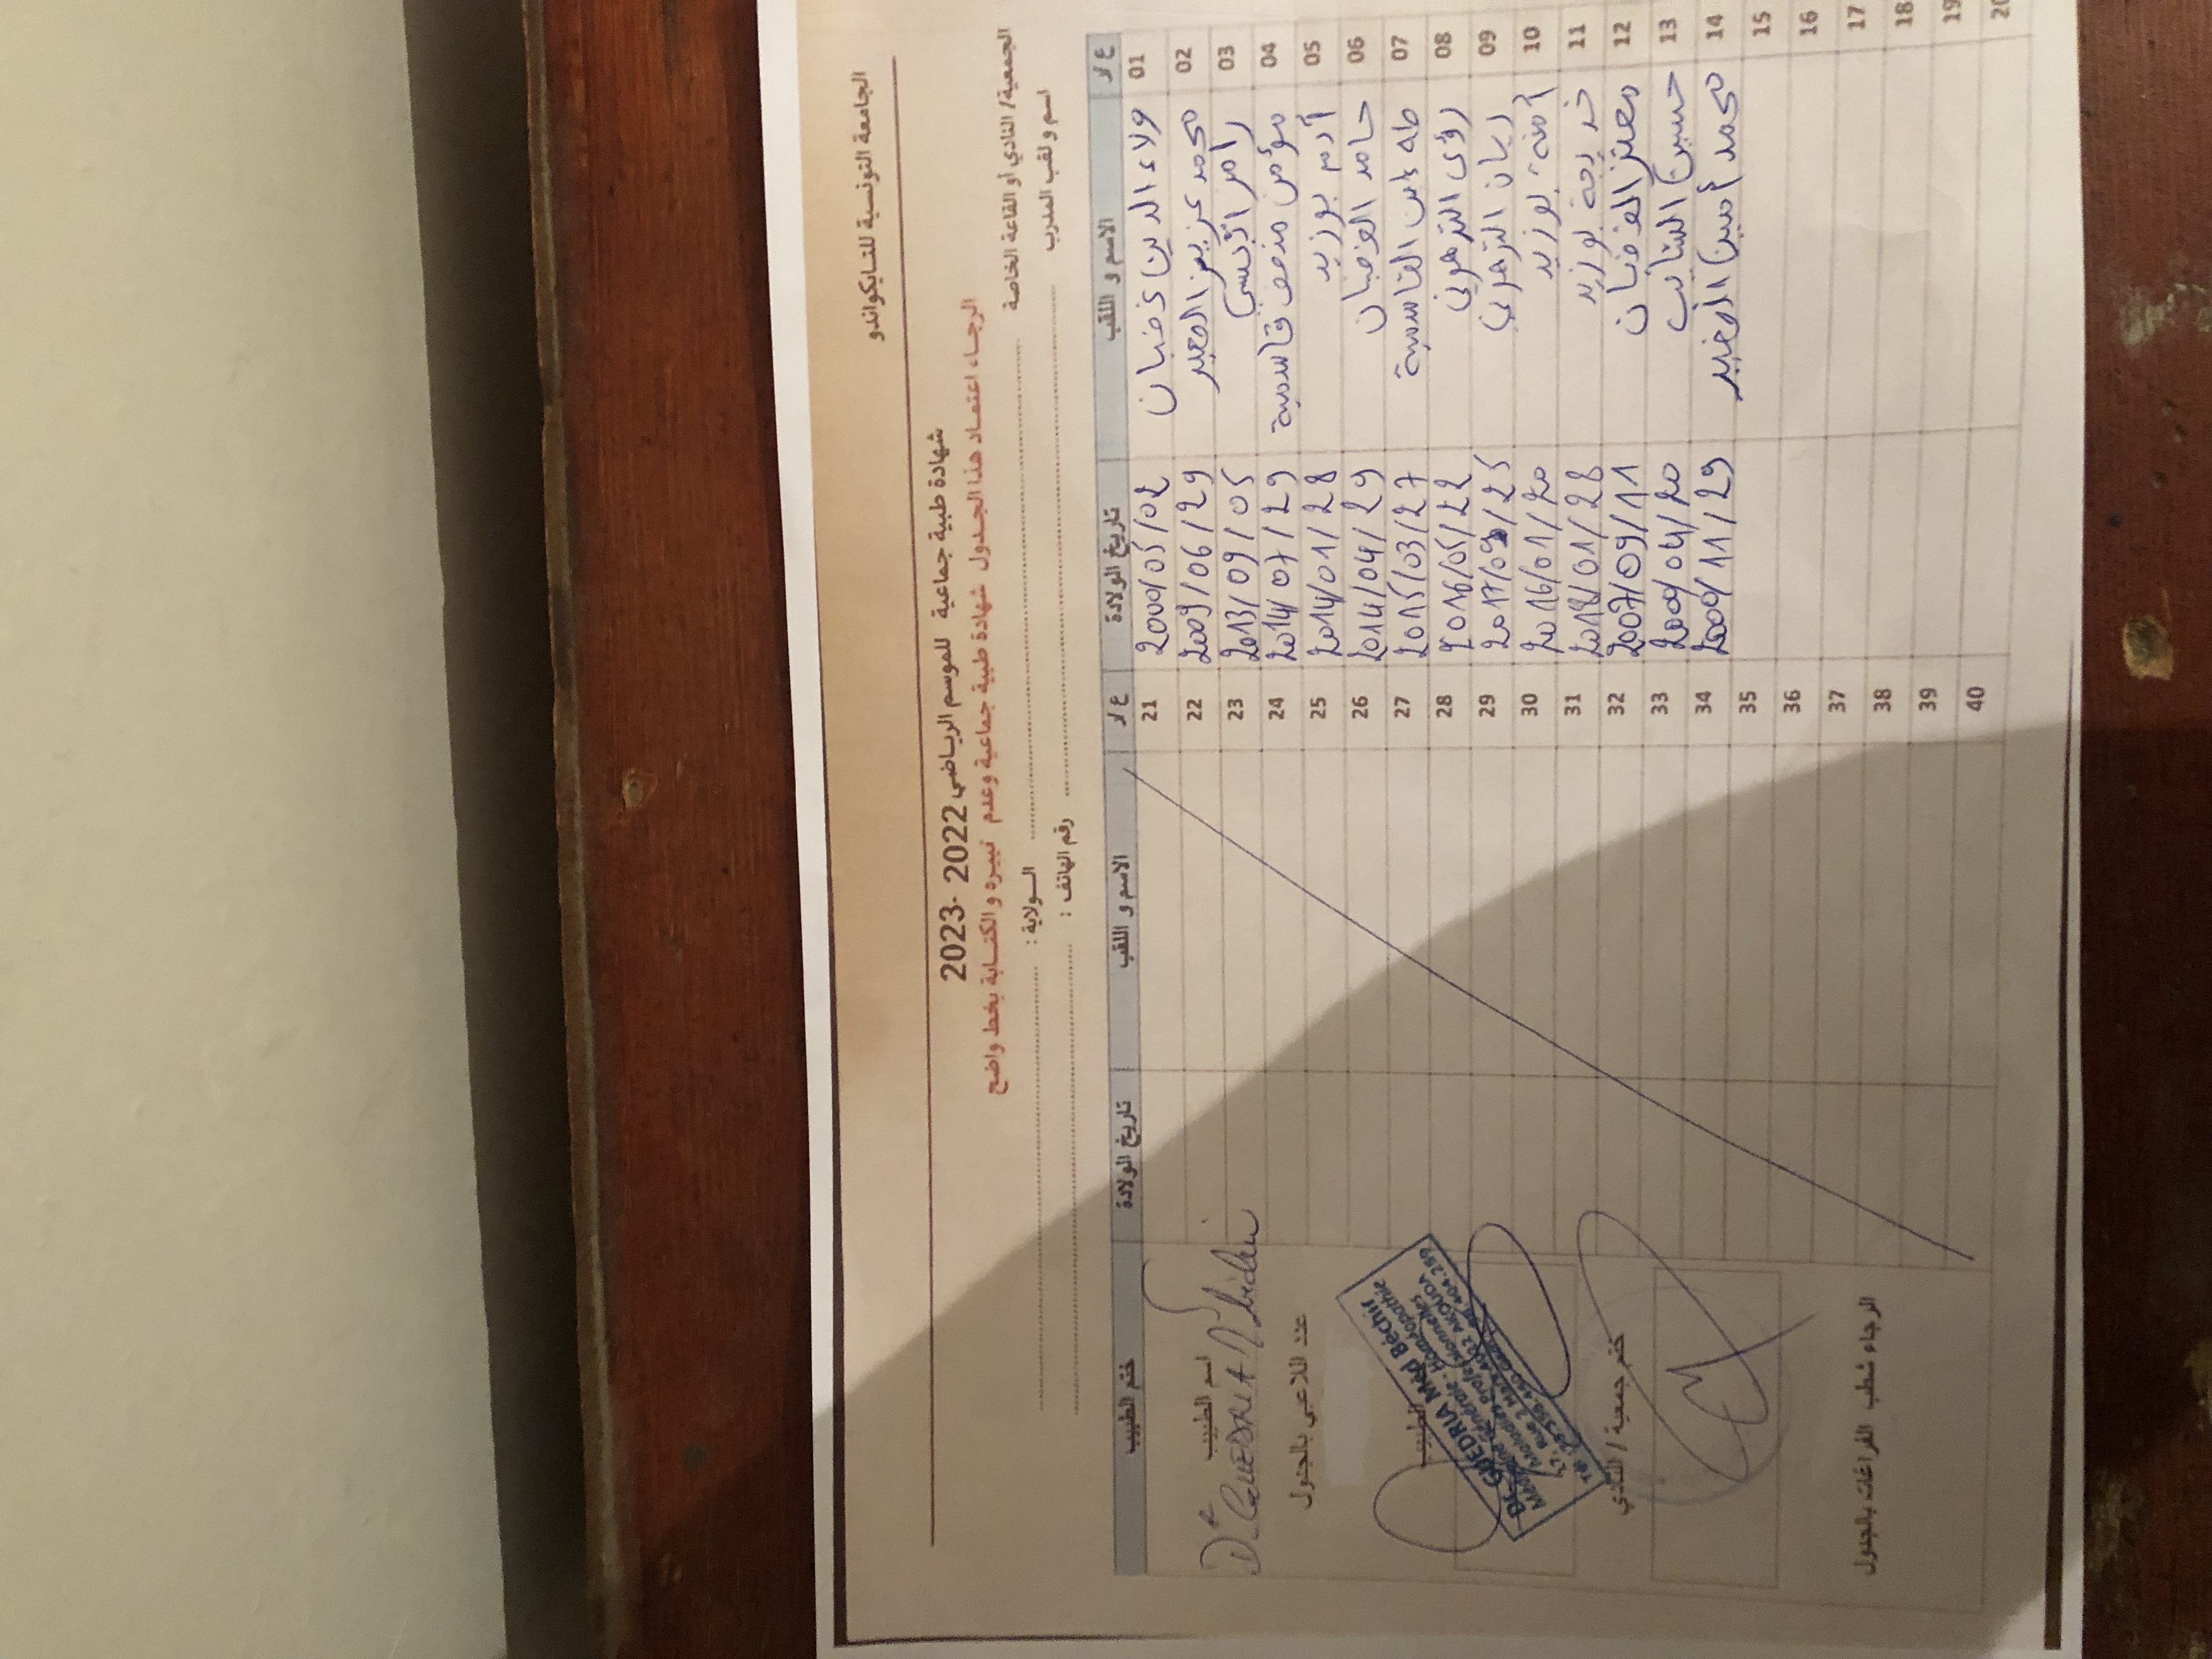 الجامعة التونسية للتايكواندو
شهادة طبية جماعية للموسم الرياضي 2022 -2023
الرجاء اعتماد هذا الجدول شهادة طبية جماعية وعدم تغييره والكتابة بخط واضح
الجمعية/ النادي أو القاعة الخاصة ........ الولاية : ........
اسم و لقب المدرب ........ رقم الهاتف : ........
ع/د الاسم و اللقب تاريخ الولادة ع/د الاسم و اللقب تاريخ الولادة ختم الطبيب
01 ولاء الدين غضبان 2000/05/02 21
02 محمد عزيز 2009/06/29 22
03 رامز 2013/09/05 23
04 مؤمن قاسمية 2014/07/29 24
05 آدم بوزيد 2014/01/28 25
06 حامد الغضبان 2014/04/29 26
07 طه القاسمية 2015/03/27 27
08 رؤى الترهوني 2016/05/22 28
09 ريان الترهوني 2017/09/25 29
10 آمنة بوزيد 2016/01/20 30
11 خديجة بوزيد 2018/01/28 31
12 معتز الغضبان 2007/09/11 32
13 حسين الشايب 2009/04/20 33
14 محمد أمين 2009/11/29 34
15 35
16 36
17 37
18 38
19 39
20 40
اسم الطبيب
Dr GUEDRIA
عدد اللاعبي بالجدول
الطبيب
Dr. GUEDRIA Med Béchir
Médecine Générale - Homéopathie
Maladies Professionnelles
ختم جمعية / النادي
الرجاء شطب الفراغات بالجدول